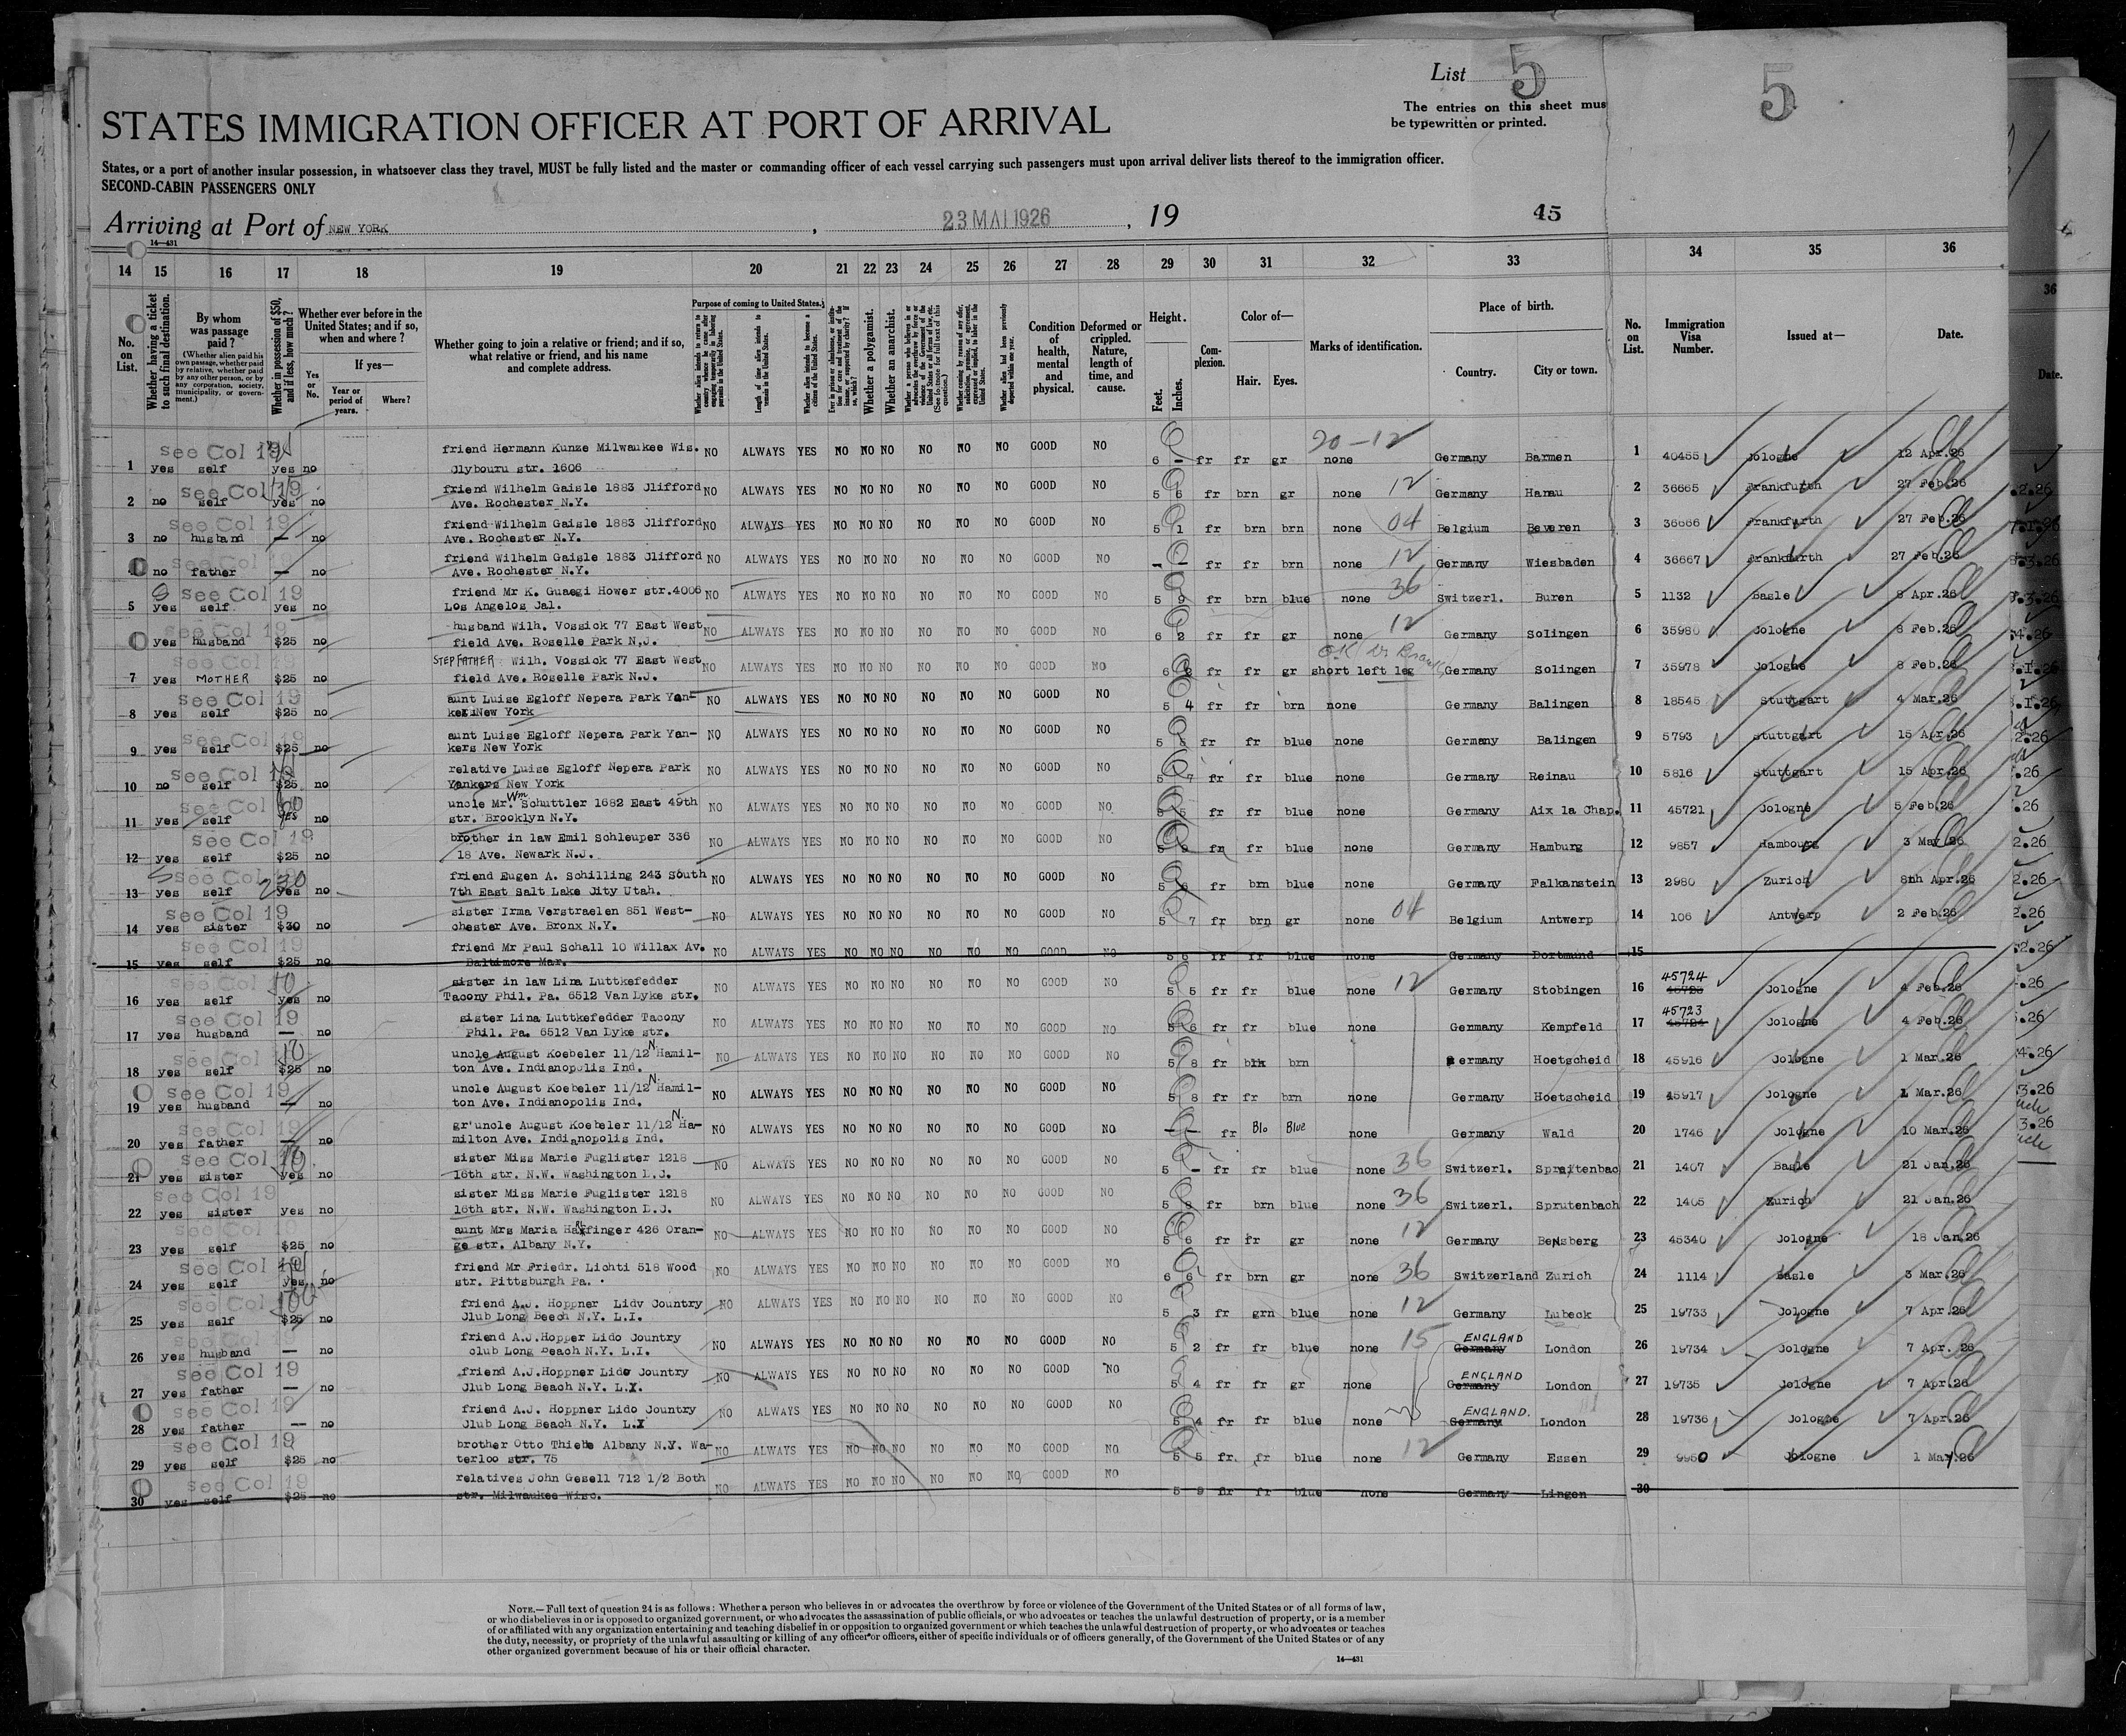 List 5
5
The entries on this sheet mus
be typewritten or printed.
STATES IMMIGRATION OFFICER AT PORT OF ARRIVAL
States, or a port of another insular possession, in whatsoever class they travel, MUST be fully listed and the master or commanding officer of each vessel carrying such passengers must upon arrival deliver lists thereof to the immigration officer.
SECOND-CABIN PASSENGERS ONLY
Arriving at Port of NEW YORK, 23 MAI 1926, 19 45
14—431
14 15 16 17 18 19 20 21 22 23 24 25 26 27 28 29 30 31 32 33 34 35 36
No. on List.
Whether having a ticket to such final destination.
By whom was passage paid?
(Whether alien paid his own passage, whether paid by relative, whether paid by any other person, or by any corporation, society, municipality, or government.)
Whether in possession of $50, and if less, how much?
Whether ever before in the United States; and if so, when and where?
If yes—
Yes or No.
Year or period of years.
Where?
Whether going to join a relative or friend; and if so, what relative or friend, and his name and complete address.
Purpose of coming to United States.
Length of time alien intends to remain in the United States.
Whether alien intends to become a citizen of the United States.
Whether a polygamist.
Whether an anarchist.
Condition of health, mental and physical.
Deformed or crippled. Nature, length of time, and cause.
Height.
Feet.
Inches.
Complexion.
Color of—
Hair.
Eyes.
Marks of identification.
Place of birth.
Country.
City or town.
No. on List.
Immigration Visa Number.
Issued at—
Date.
36
Date.
see Col 19 friend Hermann Kunze Milwaukee Wis. NO ALWAYS YES NO NO NO NO NO NO GOOD NO 20-12
1 yes self yes no Clybouru str. 1606 6 - fr fr gr none Germany Barmen 1 40455 Cologne 12 Apr.26
see Col 19 friend Wilhelm Gaisle 1883 Clifford NO ALWAYS YES NO NO NO NO NO NO GOOD NO 12
2 no self yes no Ave. Rochester N.Y. 5 6 fr brn gr none Germany Hanau 2 36665 Frankfurth 27 Feb.26
see Col 19 friend Wilhelm Gaisle 1883 Clifford NO ALWAYS YES NO NO NO NO NO NO GOOD NO 04
3 no husband — no Ave. Rochester N.Y. 5 1 fr brn brn none Belgium Beveren 3 36666 Frankfurth 27 Feb.26
see Col 19 friend Wilhelm Gaisle 1883 Clifford NO ALWAYS YES NO NO NO NO NO NO GOOD NO 12
no father — no Ave. Rochester N.Y. - - fr fr brn none Germany Wiesbaden 4 36667 Frankfurth 27 Feb.26
see Col 19 friend Mr K. Guaegi Hower str.4006 NO ALWAYS YES NO NO NO NO NO NO GOOD NO 36
5 yes self yes no Los Angelos Cal. 5 9 fr brn blue none Switzerl. Buren 5 1132 Basle 8 Apr.26
see Col 19 husband Wilh. Vossick 77 East West NO ALWAYS YES NO NO NO NO NO NO GOOD NO 12
yes husband $25 no field Ave. Roselle Park N.J. 6 2 fr fr gr none Germany Solingen 6 35980 Cologne 8 Feb.26
see Col 19 STEPFATHER Wilh. Vossick 77 East West NO ALWAYS YES NO NO NO NO NO NO GOOD NO OK
7 yes MOTHER $25 no field Ave. Roselle Park N.J. 6 fr fr gr short left leg Germany Solingen 7 35978 Cologne 8 Feb.26
see Col 19 aunt Luise Egloff Nepera Park Yan- NO ALWAYS YES NO NO NO NO NO NO GOOD NO
8 yes self $25 no kers New York 5 4 fr fr brn none Germany Balingen 8 18545 Stuttgart 4 Mar.26
see Col 19 aunt Luise Egloff Nepera Park Yan- NO ALWAYS YES NO NO NO NO NO NO GOOD NO
9 yes self $25 no kers New York 5 fr fr blue none Germany Balingen 9 5793 Stuttgart 15 Apr.26
see Col 19 relative Luise Egloff Nepera Park NO ALWAYS YES NO NO NO NO NO NO GOOD NO
10 no self $25 no Yonkers New York 5 7 fr fr blue none Germany Reinau 10 5816 Stuttgart 15 Apr.26
see Col uncle Mr. Wm Schuttler 1682 East 49th NO ALWAYS YES NO NO NO NO NO NO GOOD NO
11 yes self yes no str. Brooklyn N.Y. 5 5 fr fr blue none Germany Aix la Chap. 11 45721 Cologne 5 Feb.26
see Col 19 brother in law Emil Schleuper 336 NO ALWAYS YES NO NO NO NO NO NO GOOD NO
12 yes self $25 no 18 Ave. Newark N.J. 5 9 fr fr blue none Germany Hamburg 12 9857 Hambourg 3 May 26
see Col 19 friend Eugen A. Schilling 243 South NO ALWAYS YES NO NO NO NO NO NO GOOD NO
13 yes self 230 yes no 7th East Salt Lake City Utah. 5 8 fr brn blue none Germany Falkanstein 13 2980 Zurich 8nh Apr.26
see Col 19 sister Irma Verstraelen 851 West- NO ALWAYS YES NO NO NO NO NO NO GOOD NO 04
14 yes sister $30 no chester Ave. Bronx N.Y. 5 7 fr brn gr none Belgium Antwerp 14 106 Antwerp 2 Feb.26
see Col 19 friend Mr Paul Schall 10 Willax Av. NO ALWAYS YES NO NO NO NO NO NO GOOD NO
15 yes self $25 no Baltimore Mar. 5 6 fr fr blue none Germany Dortmund 15
see Col 19 50 sister in law Lina Luttkefedder NO ALWAYS YES NO NO NO NO NO NO GOOD NO 12 45724
16 yes self yes no Tacony Phil. Pa. 6512 Van Lyke str. 5 5 fr fr blue none Germany Stobingen 16 45723 Cologne 4 Feb.26
see Col 19 sister Lina Luttkefedder Tacony NO ALWAYS YES NO NO NO NO NO NO GOOD NO 45723
17 yes husband — no Phil. Pa. 6512 Van Lyke str. 5 6 fr fr blue none Germany Kempfeld 17 45724 Cologne 4 Feb.26
see Col uncle August Koebeler 11/12 N. Hamil- NO ALWAYS YES NO NO NO NO NO NO GOOD NO
18 yes self $25 no ton Ave. Indianopolis Ind. 5 8 fr blk brn Germany Hoetscheid 18 45916 Cologne 1 Mar.26
see Col 19 uncle August Koebeler 11/12 N. Hamil- NO ALWAYS YES NO NO NO NO NO NO GOOD NO
19 yes husband — no ton Ave. Indianopolis Ind. 5 8 fr fr brn none Germany Hoetscheid 19 45917 Cologne 1 Mar.26
see Col 19 gr'uncle August Koebeler 11/12 N. Ha- NO ALWAYS YES NO NO NO NO NO NO GOOD NO
20 yes father — no milton Ave. Indianopolis Ind. - - fr Blo Blue none Germany Wald 20 1746 Cologne 10 Mar.26
see Col 19 sister Miss Marie Fuglister 1218 NO ALWAYS YES NO NO NO NO NO NO GOOD NO 36
21 yes sister yes no 16th str. N.W. Washington D.C. 5 - fr fr blue none Switzerl. Spreitenbac 21 1407 Basle 21 Jan.26
see Col 19 sister Miss Marie Fuglister 1218 NO ALWAYS YES NO NO NO NO NO NO GOOD NO 36
22 yes sister yes no 16th str. N.W. Washington D.C. 5 fr brn blue none Switzerl. Sprutenbach 22 1405 Zurich 21 Jan.26
see Col 19 aunt Mrs Maria finger 426 Oran- NO ALWAYS YES NO NO NO NO NO NO GOOD NO 12
23 yes self $25 no ge str. Albany N.Y. 5 6 fr fr gr none Germany Bensberg 23 45340 Cologne 18 Jan.26
see Col 19 friend Mr Friedr. Lichti 518 Wood NO ALWAYS YES NO NO NO NO NO NO GOOD NO 36
24 yes self yes no str. Pittsburgh Pa. 6 6 fr brn gr none Switzerland Zurich 24 1114 Basle 3 Mar.26
see Col friend A.J. Hoppner Lidv Country NO ALWAYS YES NO NO NO NO NO NO GOOD NO 12
25 yes self $25 no Club Long Beech N.Y. L.I. 5 3 fr grn blue none Germany Lubeck 25 19733 Cologne 7 Apr.26
see Col 19 friend A.J.Hopper Lido Country NO ALWAYS YES NO NO NO NO NO NO GOOD NO 15 ENGLAND
26 yes husband — no club Long Beach N.Y. L.I. 5 2 fr fr blue none Germany London 26 19734 Cologne 7 Apr. 26
see Col 19 friend A.J.Hoppner Lido Country NO ALWAYS YES NO NO NO NO NO NO GOOD NO ENGLAND
27 yes father — no Club Long Beach N.Y. L.I. 5 4 fr fr gr none Germany London 27 19735 Cologne 7 Apr.26
see Col 19 friend A.J. Hoppner Lido Country NO ALWAYS YES NO NO NO NO NO NO GOOD NO ENGLAND.
28 yes father — no Club Long Beach N.Y. L.I 5 4 fr fr blue none Germany London 28 19736 Cologne 7 Apr.26
see Col 19 brother Otto Thiele Albany N.Y. Wa- NO ALWAYS YES NO NO NO NO NO NO GOOD NO 12
29 yes self $25 no terloo str. 75 5 5 fr fr blue none Germany Essen 29 9950 Cologne 1 Mar.26
see Col 19 relatives John Gesell 712 1/2 Both NO ALWAYS YES NO NO NO NO NO NO GOOD NO
30 yes self $25 no str. Milwaukee Wisc. 5 9 fr fr blue none Germany Lingen 30
NOTE.—Full text of question 24 is as follows: Whether a person who believes in or advocates the overthrow by force or violence of the Government of the United States or of all forms of law,
or who disbelieves in or is opposed to organized government, or who advocates the assassination of public officials, or who advocates or teaches the unlawful destruction of property, or is a member
of or affiliated with any organization entertaining and teaching disbelief in or opposition to organized government or which teaches the unlawful destruction of property, or who advocates or teaches
the duty, necessity, or propriety of the unlawful assaulting or killing of any officer or officers, either of specific individuals or of officers generally, of the Government of the United States or of any
other organized government because of his or their official character.
14—431